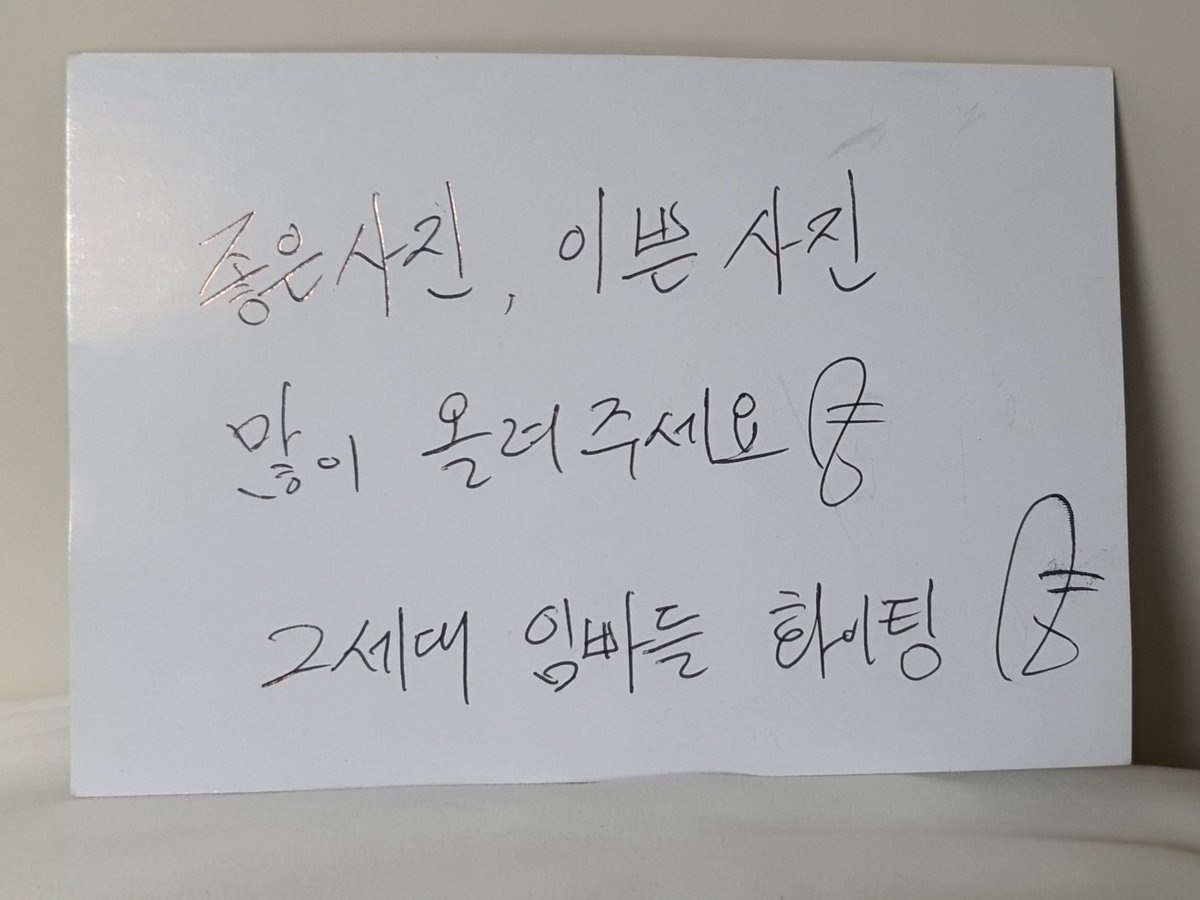 좋은 사진, 이쁜 사진
많이 올려주세요
그세대 임빠들 화이팅